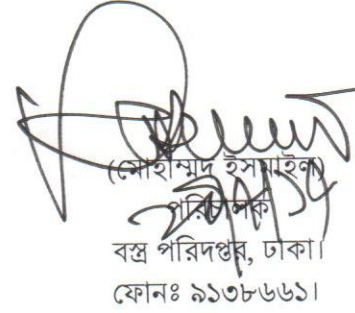 (মোহাম্মদ ইসমাইল)
পরিচালক
বস্ত্র পরিদপ্তর, ঢাকা।
ফোনঃ ৯১৩৮৬৬১।